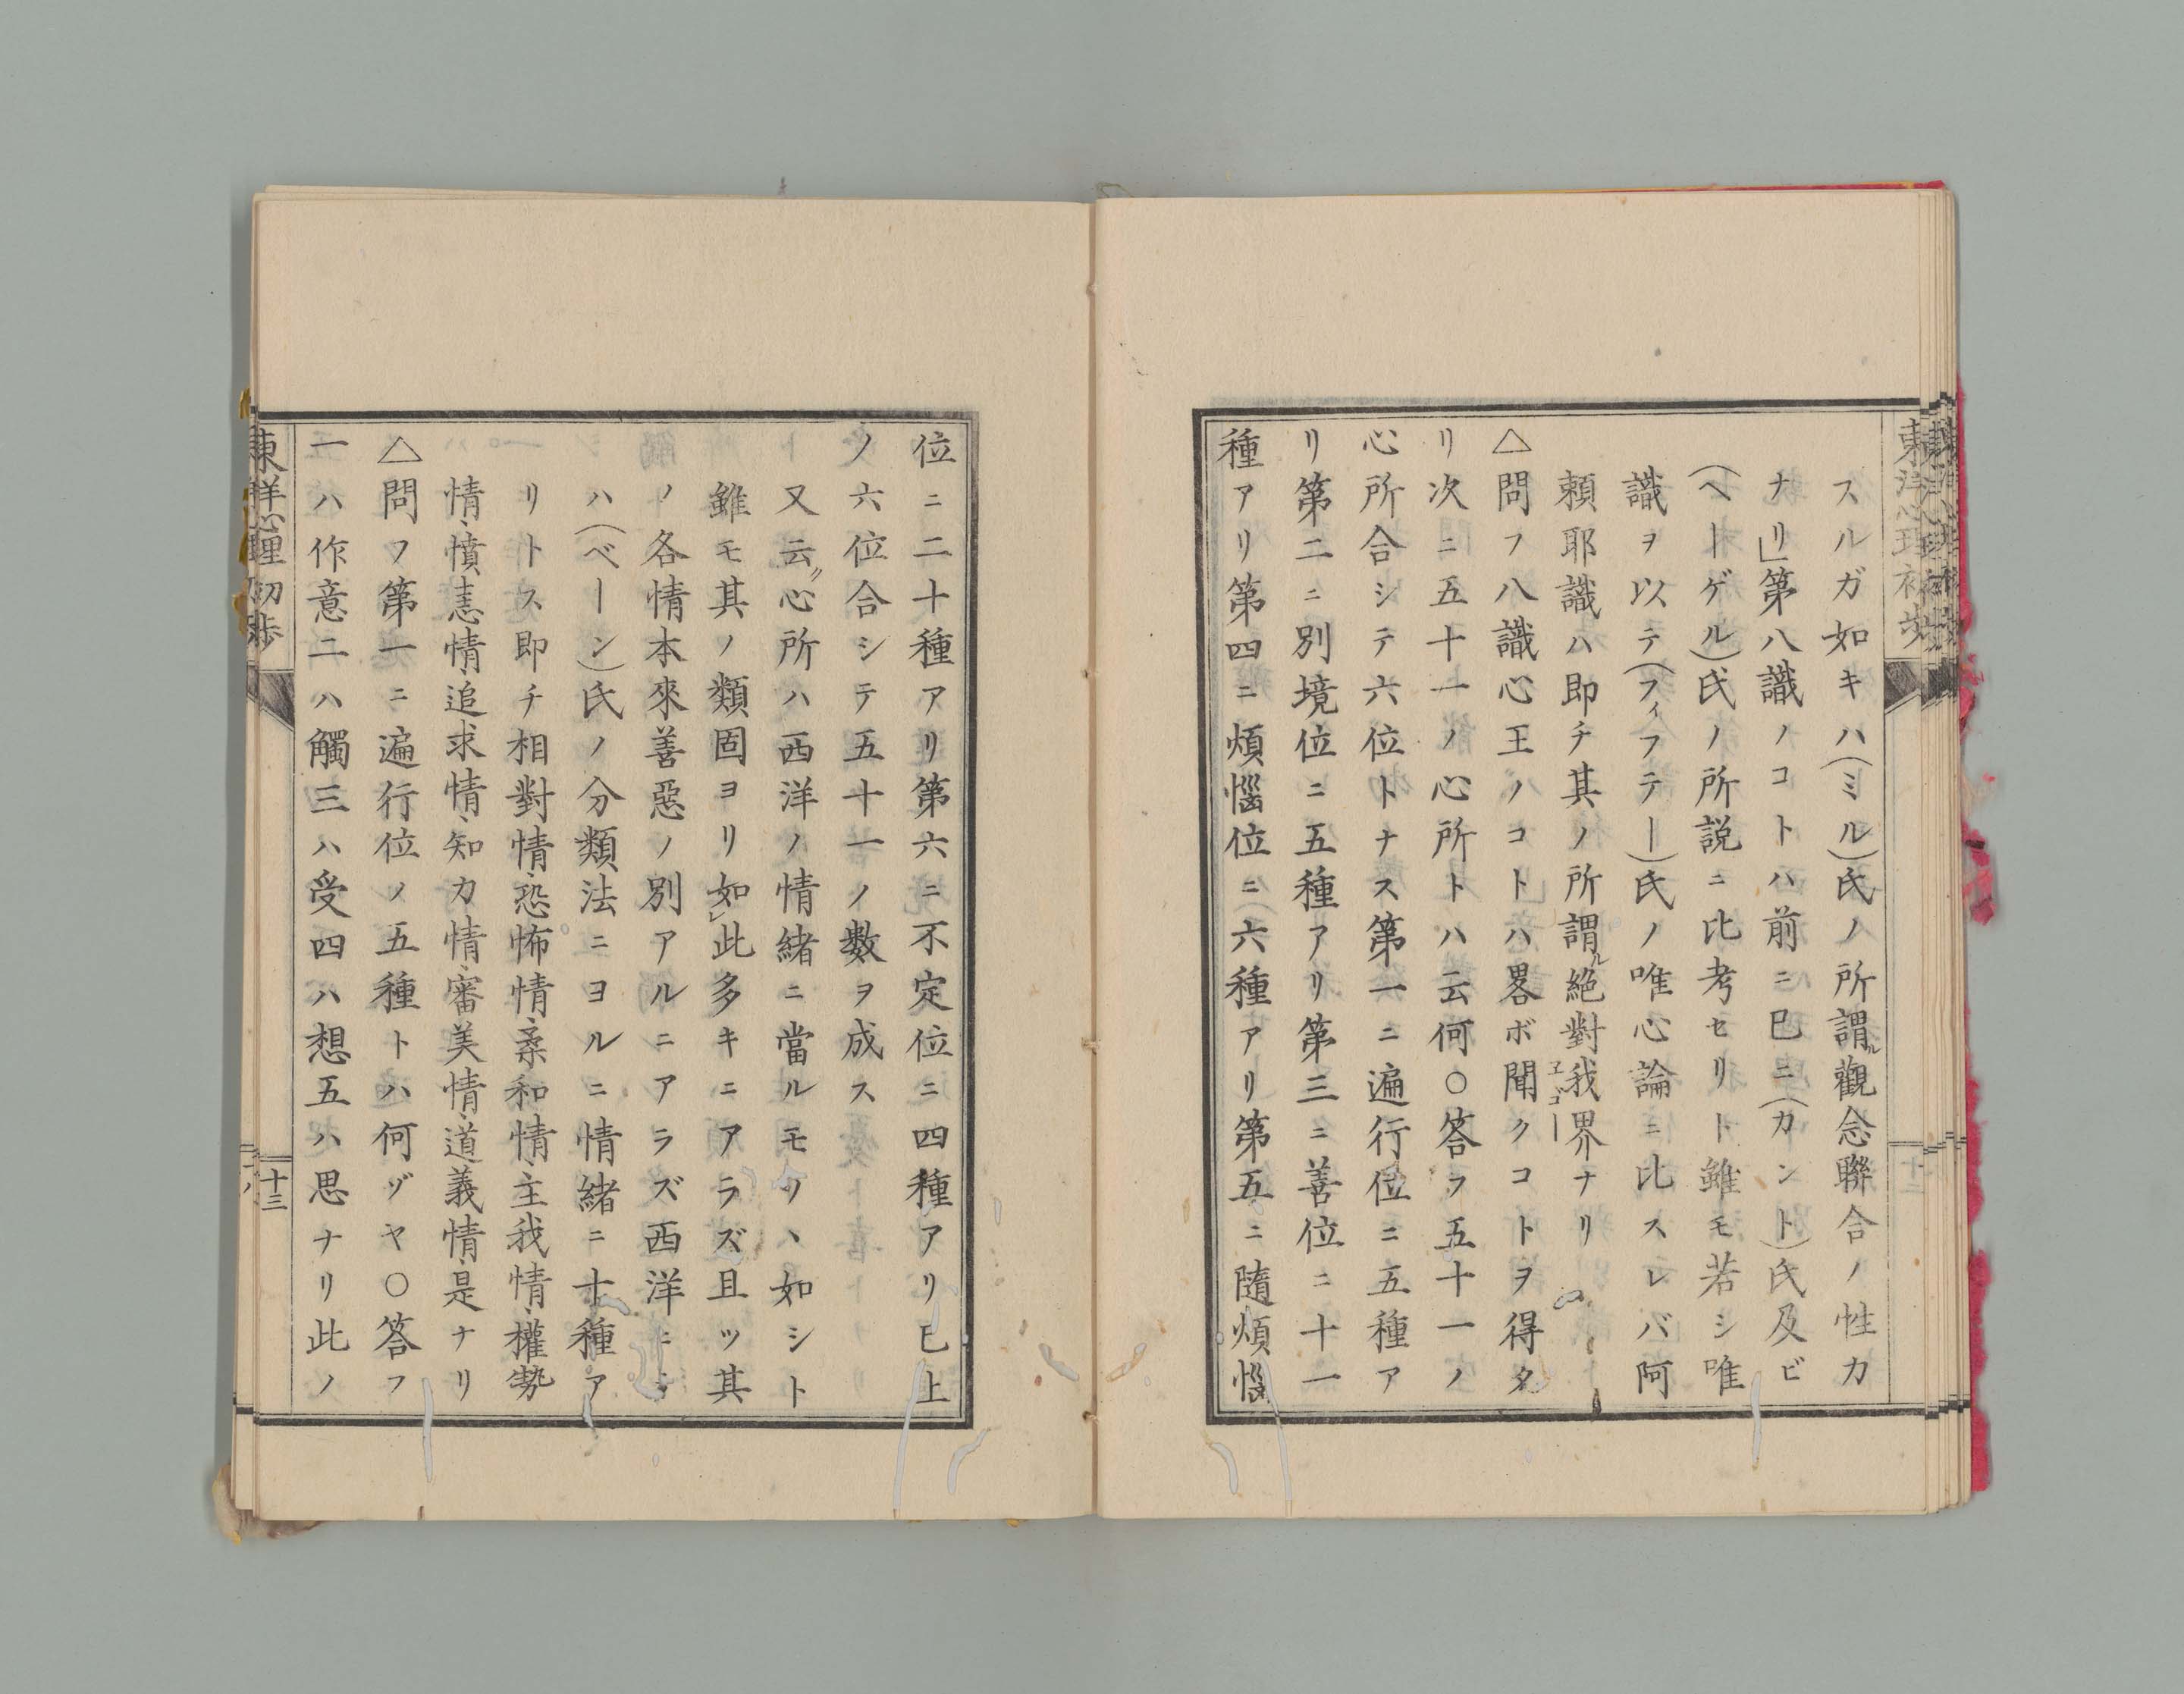 スルガ如キハ(ミル)氏ノ所謂ル觀念聯合ノ性力
ナリ」第八識ノコトハ前ニ已ニ(カント)氏及ビ
(ヘーゲル)氏ノ所説ニ比考セリト雖モ若シ唯
識ヲ以テ(フィフテー)氏ノ唯心論ニ比スレバ阿
頼耶識ハ即チ其ノ所謂ル絶對我界ナリ
エゴー
△問フ八識心王ノコトハ畧ボ聞クコトヲ得タ
リ次ニ五十一ノ心所トハ云何○答フ五十一ノ
心所合シテ六位トナス第一ニ遍行位ニ五種ア
リ第二ニ別境位ニ五種アリ第三ニ善位ニ十一
種アリ第四ニ煩惱位ニ六種アリ第五ニ隨煩惱
東洋心理初歩
位ニ二十種アリ第六ニ不定位ニ四種アリ已上
ノ六位合シテ五十一ノ數ヲ成ス
又云心所ハ西洋ノ情緒ニ當ルモノヽ如シト
雖モ其ノ類固ヨリ如此多キニアラズ且ツ其
ノ各情本來善惡ノ別アルニアラズ西洋ニテ
ハ(ベーン)氏ノ分類法ニヨルニ情緒ニ十種ア
リトス即チ相對情、恐怖情、柔和情、主我情、權勢
情、憤恚情、追求情、知力情、審美情、道義情、是ナリ
△問フ第一ニ遍行位ノ五種トハ何ヅヤ○答フ
一ハ作意二ハ觸三ハ受四ハ想五ハ思ナリ此ノ
東洋心理初歩
十三